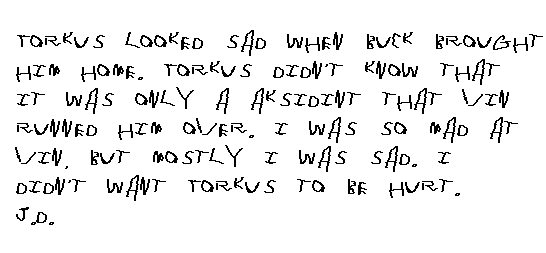 TORKUS LOOKED SAD WHEN BUCK BROUGHT
HIM HOME. TORKUS DIDN'T KNOW THAT
IT WAS ONLY A AKSIDINT THAT VIN
RUNNED HIM OVER. I WAS SO MAD AT
VIN, BUT MOSTLY I WAS SAD. I
DIDN'T WANT TORKUS TO BE HURT.
J.D.